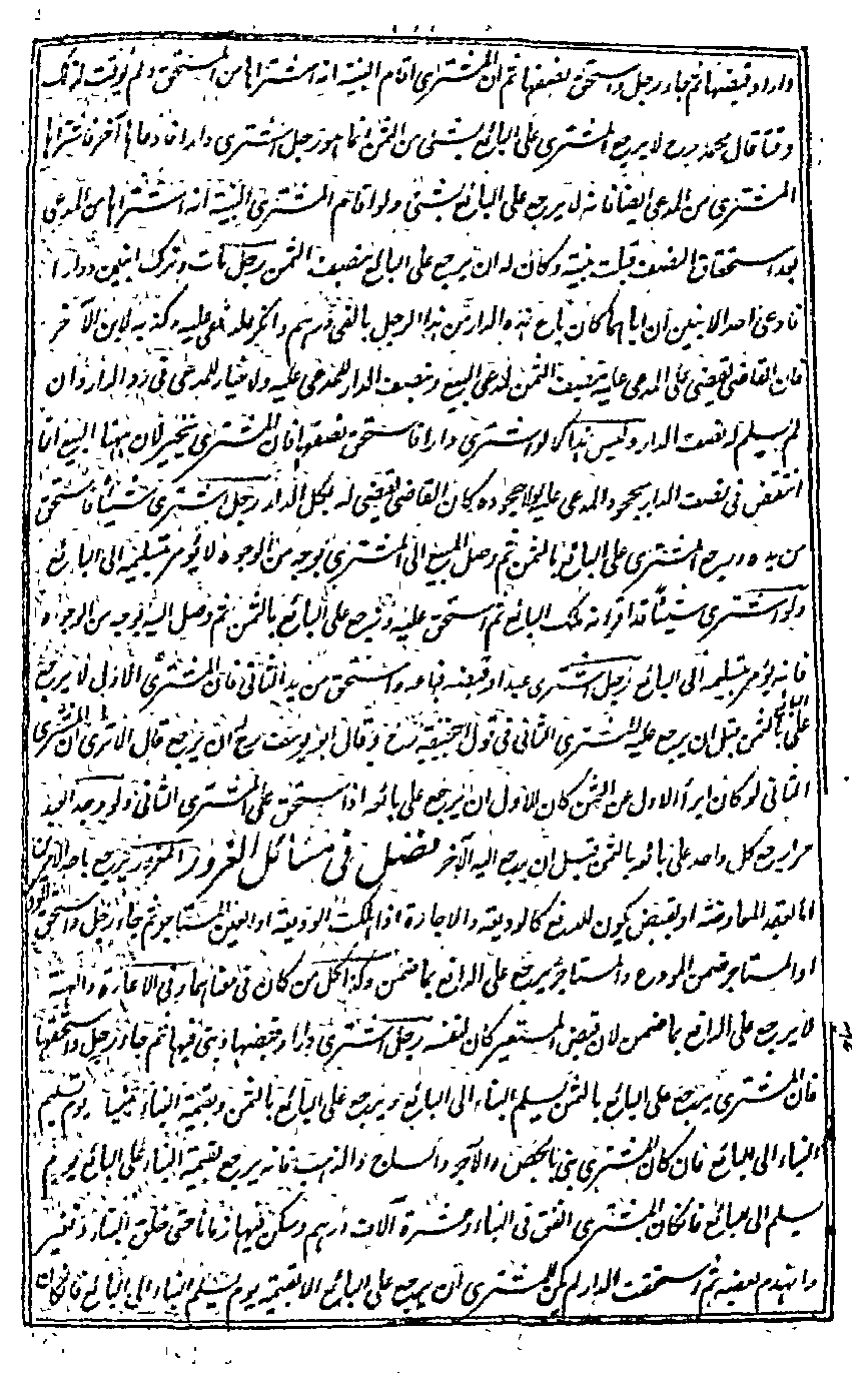 دارا وقبضها ثم جاء رجل واستحق نصفها ثم ان المشترى اقام البينة انه اشتراها من المستحق ولم يوقت لذلك
وقتا قال محمد رح لا يرجع المشترى على البائع بشئ من الثمن انما هو رجل اشترى دارا فادعاها آخر فاشتراها
المشترى من المدعى ايضا فانه لا يرجع على البائع بشئ ولو اقام المشترى البينة انه اشتراها من المدعى
بعد استحقاق النصف قبلت بينته وكان له ان يرجع على البائع بنصف الثمن رجل مات وترك ابنين ودارا
فادعى احد الابنين ان اباهما كان باع هذه الدار من هذا الرجل بالفى درهم وانكر المدعى عليه وكذبه الابن الآخر
فان القاضى يقضى على المدعى عليه بنصف الثمن لمدعى البيع وبنصف الدار للمدعى عليه ولا خيار للمدعى فى رد الدار وان
لم يسلم له نصف الدار وليس هذا كما لو اشترى دارا فاستحق نصفها فان المشترى يتخير لان ههنا البيع انما
انتقض فى نصف الدار بجحود المدعى عليه ولولا جحوده كان القاضى يقضى له بكل الدار رجل اشترى شيئا فاستحق
من يده ورجع المشترى على البائع بالثمن ثم وصل المبيع الى المشترى بوجه من الوجوه لا يؤمر بتسليمه الى البائع
ولو اشترى شيئا قد اقر انه ملك البائع ثم استحق عليه ورجع على البائع بالثمن ثم وصل اليه بوجه من الوجوه
فانه يؤمر بتسليمه الى البائع رجل اشترى عبدا وقبضه فباعه واستحق من يد الثانى فان المشترى الاول لا يرجع
على البائع بالثمن قبل ان يرجع عليه المشترى الثانى فى قول ابى حنيفة رح وقال ابو يوسف رح له ان يرجع قال الا ترى ان المشترى
الثانى لو كان ابرأ الاول عن الثمن كان للاول ان يرجع على بائعه اذا استحق على المشترى الثانى ولو وجد العبد
حرا يرجع كل واحد على بائعه بالثمن قبل ان يرجع اليه الآخر فصل فى مسائل الغرور المغرور يرجع باحد الامرين
اما بعقد المعاوضة او بقبض يكون للدافع كالوديعة والاجارة اذا هلكت الوديعة او العين المستاجرة ثم جاء رجل واستحق
او المستاجر ضمن المودع والمستاجر يرجع على الدافع بما ضمن وكذا كل من كان فى معناهما وفى الاعارة والهبة
لا يرجع على الدافع بما ضمن لان قبض المستعير كان لنفسه رجل اشترى دارا وقبضها وبنى فيها ثم جاء رجل واستحقها
فان المشترى يرجع على البائع بالثمن ويسلم البناء الى البائع ويرجع على البائع بالثمن وبقيمة البناء مبنيا يوم تسليم
البناء الى البائع فان كان المشترى بنى بالجص والآجر والساج والذهب فانه يرجع بقيمة البناء على البائع يوم
يسلم الى البائع فان كان المشترى انفق فى البناء عشرة آلاف درهم وسكن فيها زمانا حتى خلق البناء وتغير
وانهدم بعضه ثم استحقت الدار لم يكن للمشترى ان يرجع على البائع الا بقيمته يوم يسلم البناء الى البائع فان كان